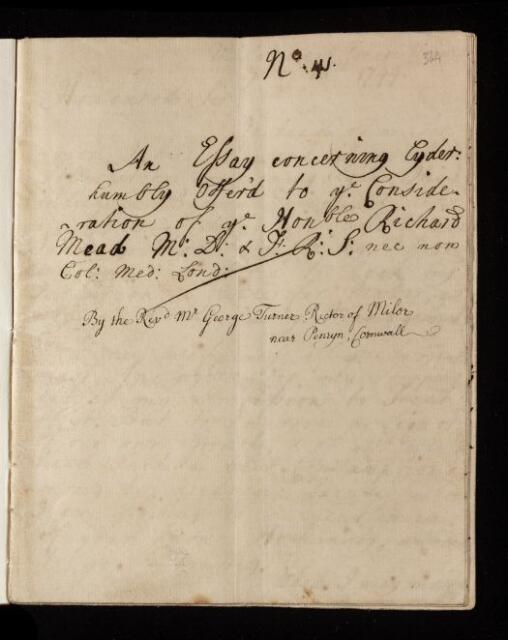 No. 4.
364
An Essay concerning Cyder:
humbly Offer'd to ye Conside-
-ration of ye Honble Richard
Mead M: D: & F: R: S: nec non
Col: Med: Lond:
By the Revd Mr George Turner Rector of Milor
near Penryn, Cornwall